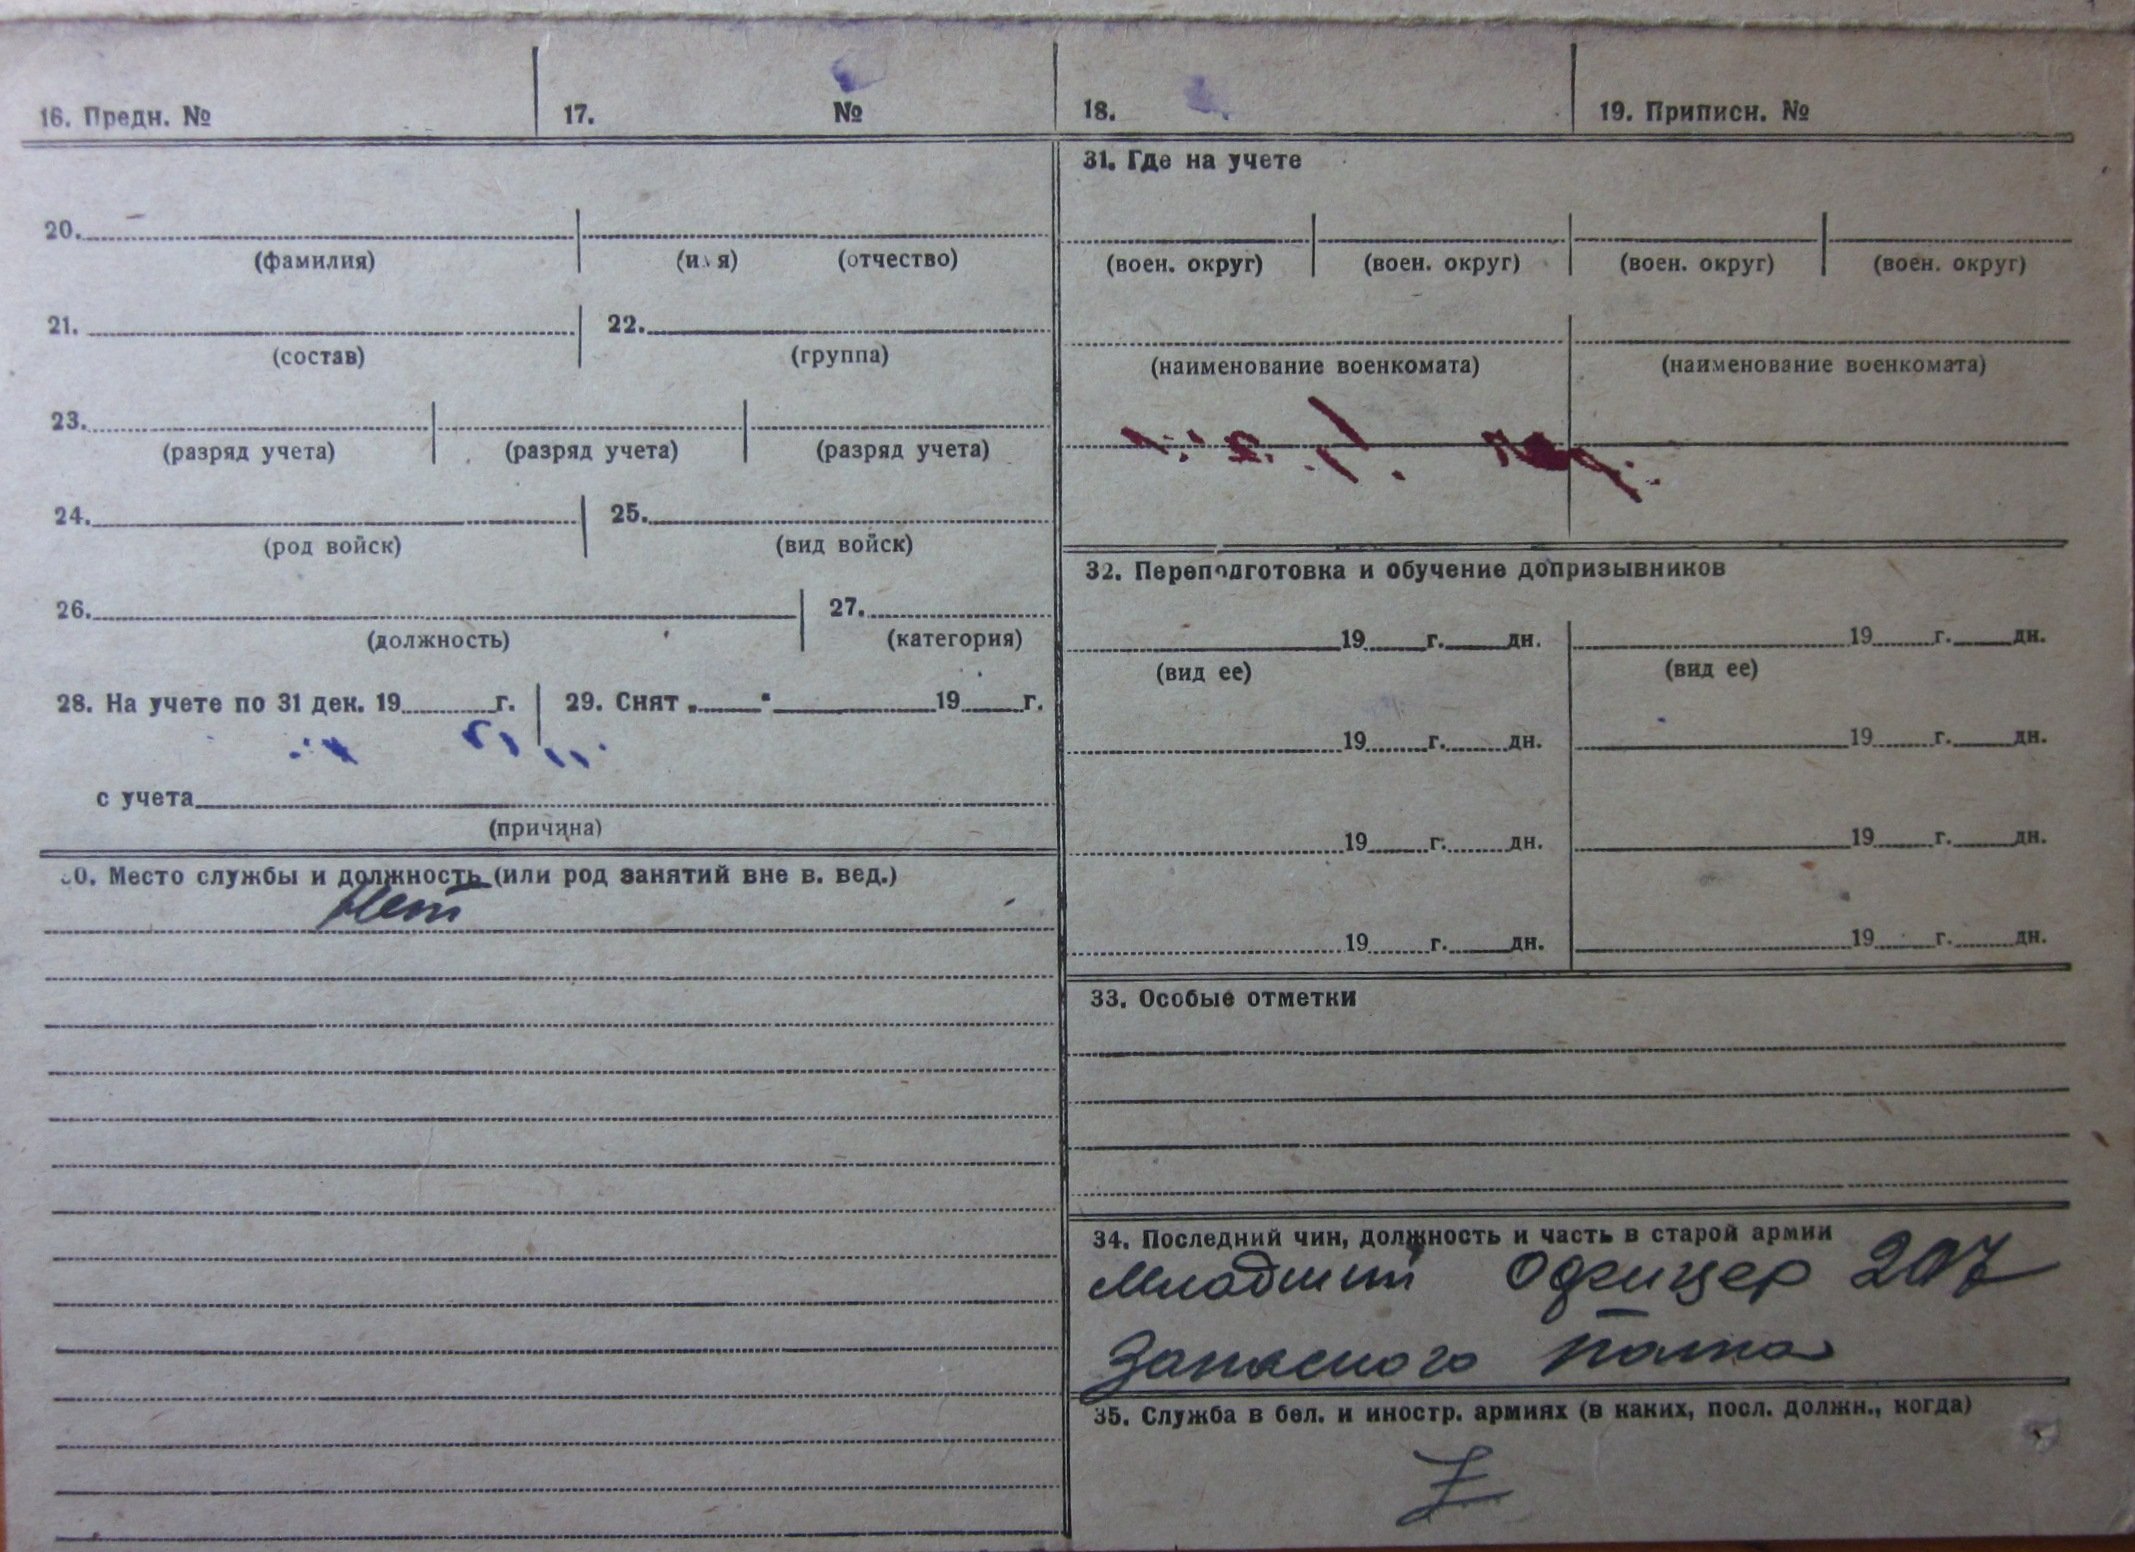 16. Предн. №
17. №
18.
19. Приписн. №
20.
(фамилия) (имя) (отчество)
21. 22.
(состав) (группа)
23.
(разряд учета) (разряд учета) (разряд учета)
24. 25.
(род войск) (вид войск)
26. 27.
(должность) (категория)
28. На учете по 31 дек. 19 г. 29. Снят „ " 19 г.
с учета
(причина)
30. Место службы и должность (или род занятий вне в. вед.)
Нет
31. Где на учете
(воен. округ) (воен. округ) (воен. округ) (воен. округ)
(наименование военкомата) (наименование военкомата)
32. Переподготовка и обучение допризывников
19 г. дн. 19 г. дн.
(вид ее) (вид ее)
19 г. дн. 19 г. дн.
19 г. дн. 19 г. дн.
19 г. дн. 19 г. дн.
33. Особые отметки
34. Последний чин, должность и часть в старой армии
Младший Офицер 207
Запасного полка
35. Служба в бел. и иностр. армиях (в каких, посл. должн., когда)